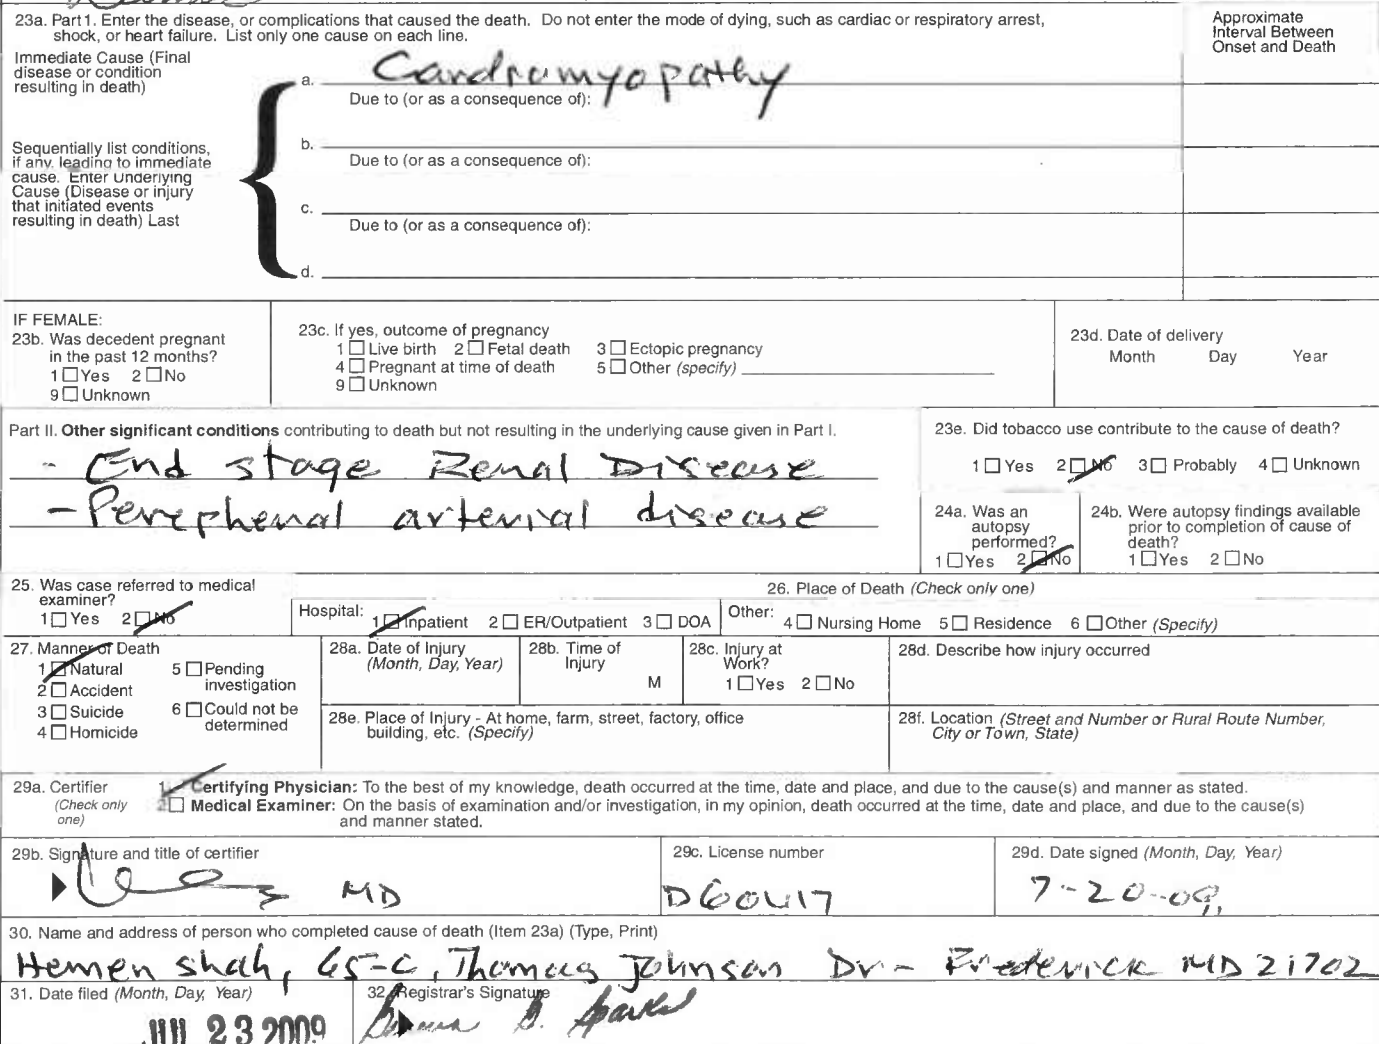 23a. Part 1. Enter the disease, or complications that caused the death. Do not enter the mode of dying, such as cardiac or respiratory arrest,
shock, or heart failure. List only one cause on each line.
Approximate
Interval Between
Onset and Death
Immediate Cause (Final
disease or condition
resulting in death)
a. Cardiomyopathy
Due to (or as a consequence of):
Sequentially list conditions,
if any, leading to immediate
cause. Enter Underlying
Cause (Disease or injury
that initiated events
resulting in death) Last
b.
Due to (or as a consequence of):
c.
Due to (or as a consequence of):
d.
IF FEMALE:
23b. Was decedent pregnant
in the past 12 months?
1 ☐ Yes 2 ☐ No
9 ☐ Unknown
23c. If yes, outcome of pregnancy
1 ☐ Live birth 2 ☐ Fetal death 3 ☐ Ectopic pregnancy
4 ☐ Pregnant at time of death 5 ☐ Other (specify)
9 ☐ Unknown
23d. Date of delivery
Month Day Year
Part II. Other significant conditions contributing to death but not resulting in the underlying cause given in Part I.
- End stage Renal Disease
- Perepheral arterial disease
23e. Did tobacco use contribute to the cause of death?
1 ☐ Yes 2 ☐ No 3 ☐ Probably 4 ☐ Unknown
24a. Was an
autopsy
performed?
1 ☐ Yes 2 ☐ No
24b. Were autopsy findings available
prior to completion of cause of
death?
1 ☐ Yes 2 ☐ No
25. Was case referred to medical
examiner?
1 ☐ Yes 2 ☐ No
26. Place of Death (Check only one)
Hospital: 1 ☐ Inpatient 2 ☐ ER/Outpatient 3 ☐ DOA Other: 4 ☐ Nursing Home 5 ☐ Residence 6 ☐ Other (Specify)
27. Manner of Death
1 ☐ Natural 5 ☐ Pending
investigation
2 ☐ Accident
3 ☐ Suicide 6 ☐ Could not be
determined
4 ☐ Homicide
28a. Date of Injury
(Month, Day, Year)
28b. Time of
Injury
M
28c. Injury at
Work?
1 ☐ Yes 2 ☐ No
28d. Describe how injury occurred
28e. Place of Injury - At home, farm, street, factory, office
building, etc. (Specify)
28f. Location (Street and Number or Rural Route Number,
City or Town, State)
29a. Certifier
(Check only
one)
1 Certifying Physician: To the best of my knowledge, death occurred at the time, date and place, and due to the cause(s) and manner as stated.
2 ☐ Medical Examiner: On the basis of examination and/or investigation, in my opinion, death occurred at the time, date and place, and due to the cause(s)
and manner stated.
29b. Signature and title of certifier
MD
29c. License number
D60417
29d. Date signed (Month, Day, Year)
7-20-09
30. Name and address of person who completed cause of death (Item 23a) (Type, Print)
Hemen Shah, 65-C, Thomas Johnson Dr - Frederick MD 21702
31. Date filed (Month, Day, Year)
JUL 23 2009
32. Registrar's Signature
B. Sparks